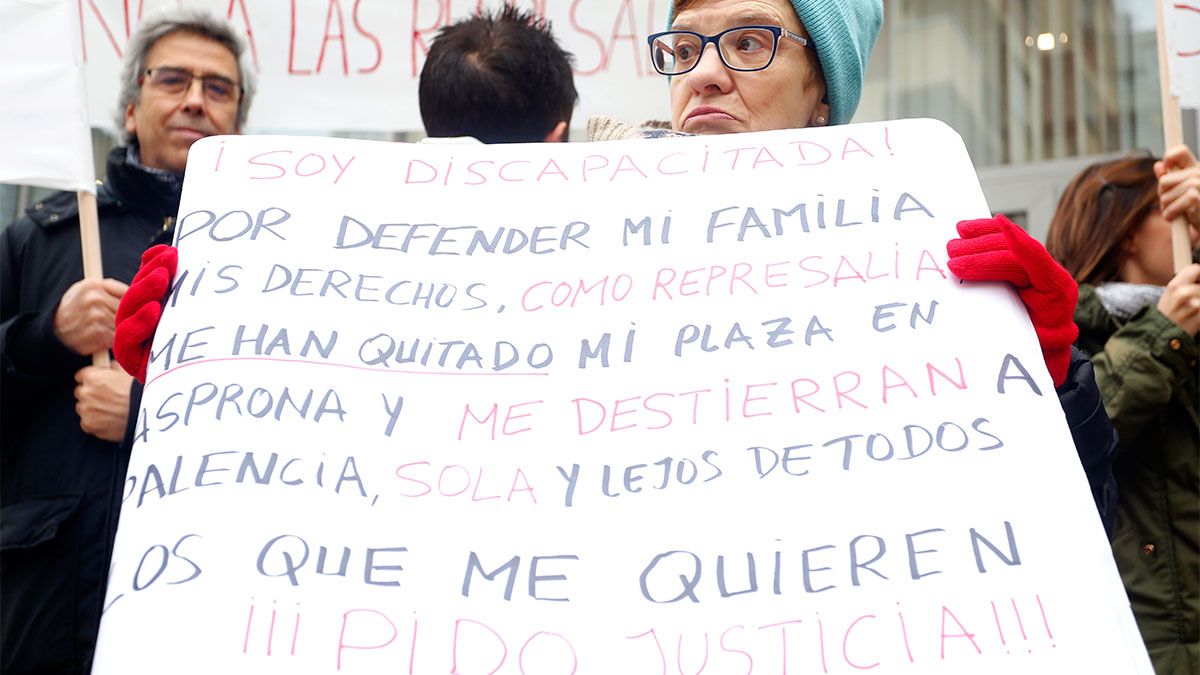 NO A LAS REPRESALI
¡SOY DISCAPACITADA!
POR DEFENDER MI FAMILIA
MIS DERECHOS, COMO REPRESALIA
ME HAN QUITADO MI PLAZA EN
ASPRONA Y ME DESTIERRAN A
PALENCIA, SOLA Y LEJOS DE TODOS
LOS QUE ME QUIEREN
¡¡¡PIDO JUSTICIA!!!